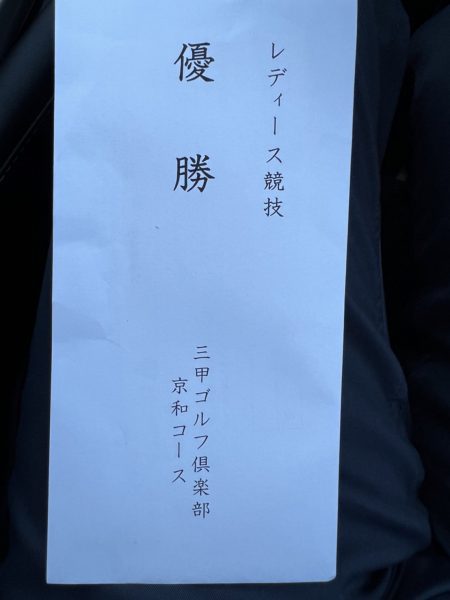 レディース競技
優勝
三甲ゴルフ倶楽部
京和コース